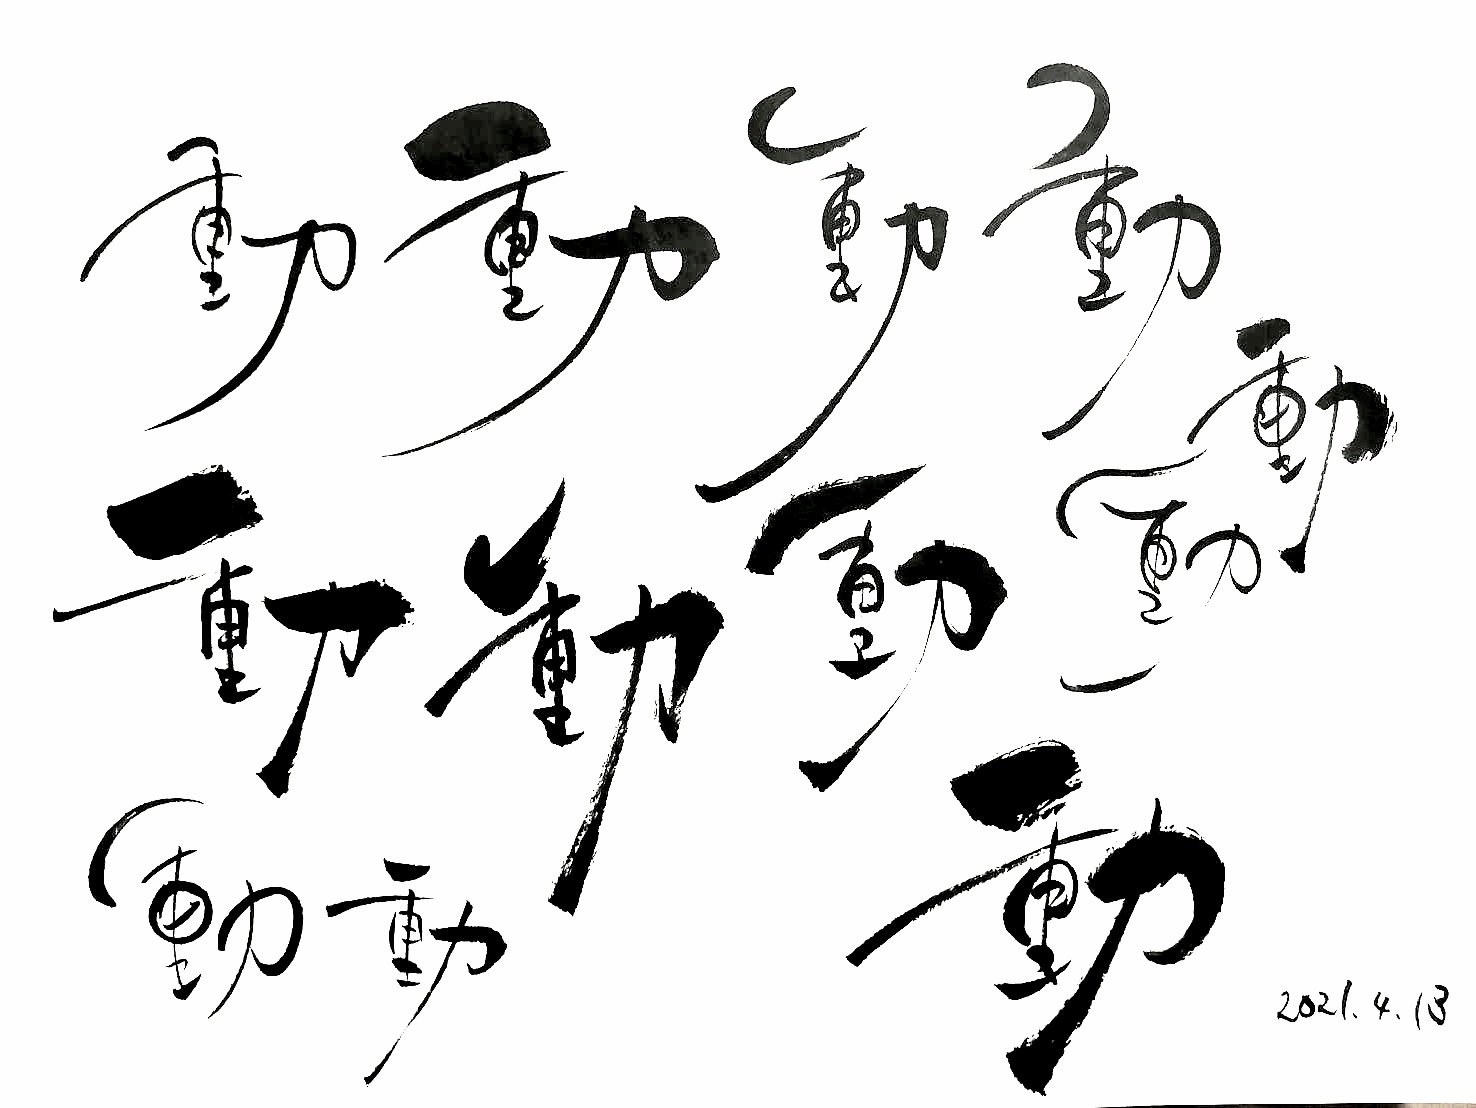 動 動 動 動
動
動 動 動 動
動 動 動
2021.4.13